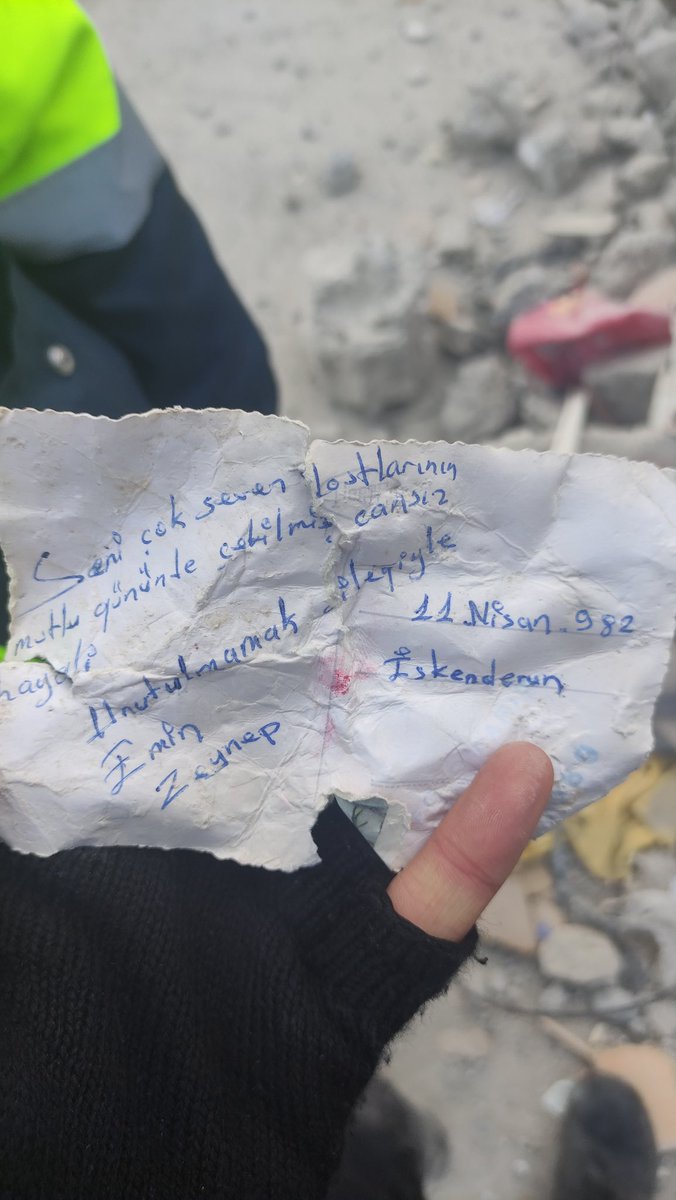 Seni çok seven Dostlarının
mutlu gününde çekilmiş cansız
hayali
Unutulmamak dileğiyle
Emin
Zeynep
11.Nisan.982
İskenderun